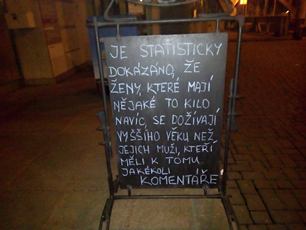 JE STATISTICKY
DOKÁZÁNO, ŽE
ŽENY, KTERÉ MAJÍ
NĚJAKÉ TO KILO
NAVÍC, SE DOŽÍVAJÍ
VYŠŠÍHO VĚKU NEŽ
JEJICH MUŽI, KTEŘÍ
MĚLI K TOMU
JAKÉKOLI
KOMENTÁŘE